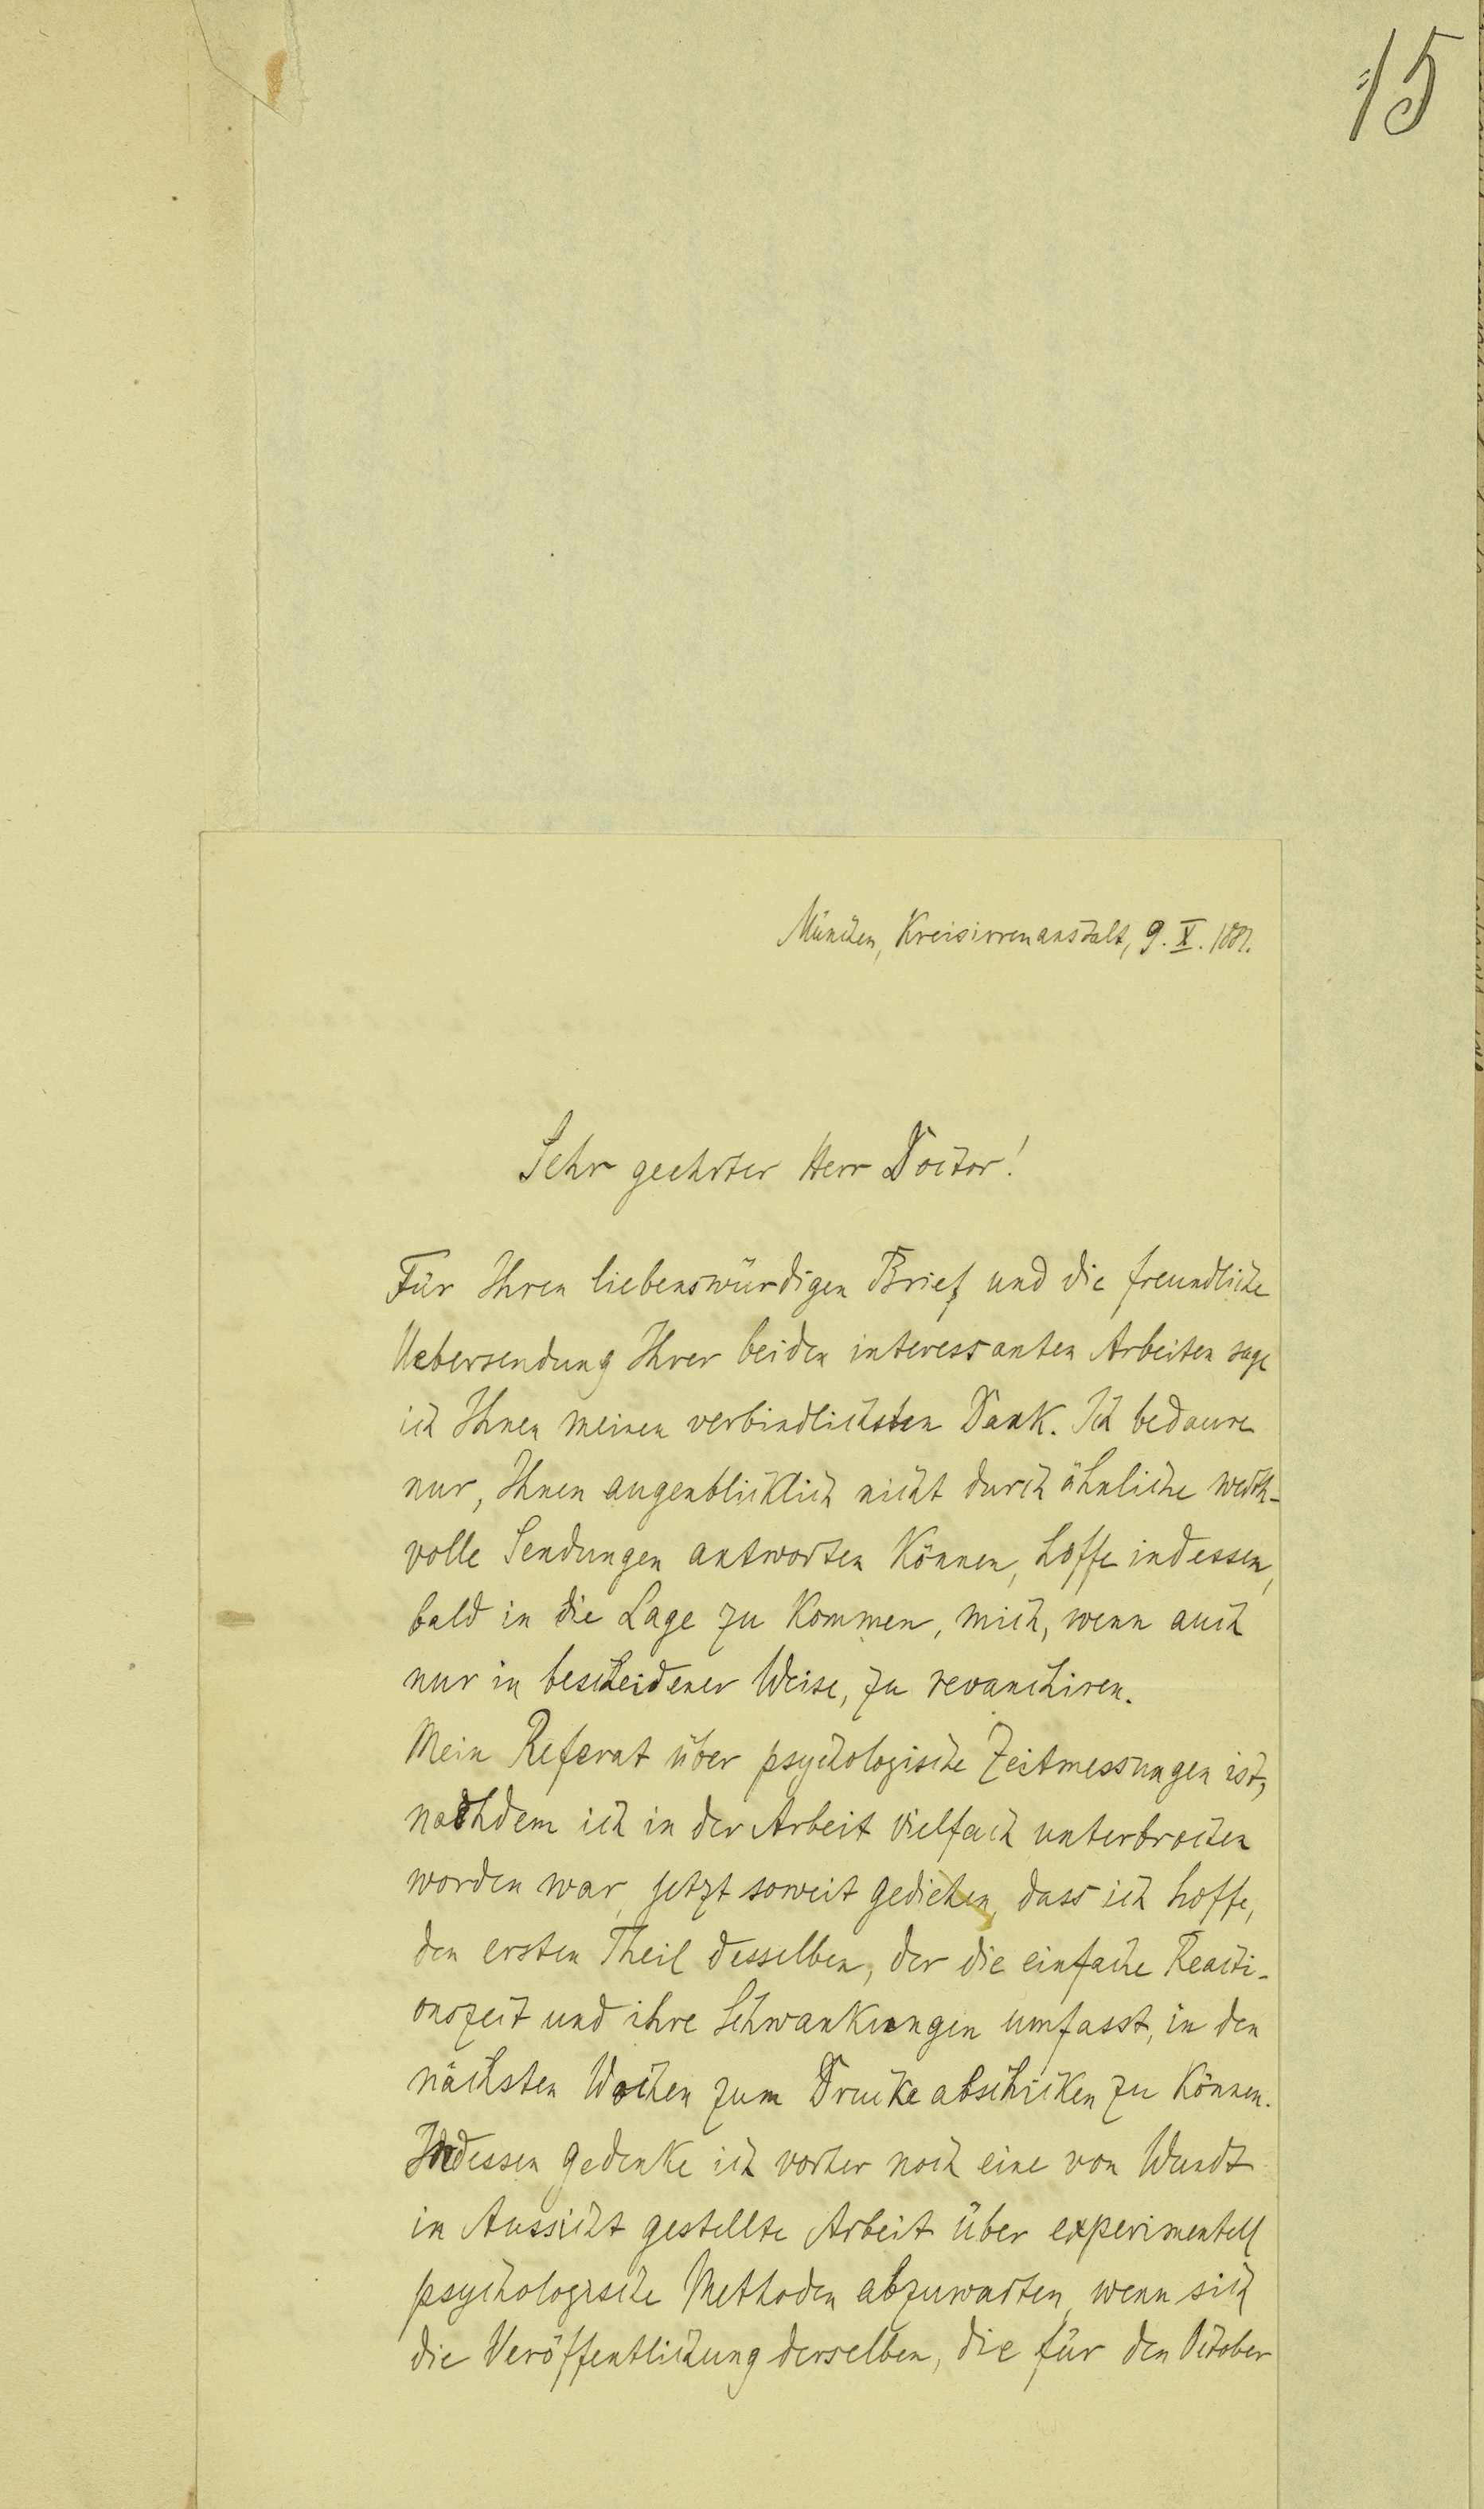 15
München, Kreisirrenanstalt, 9. X. 1881.
Sehr geehrter Herr Doctor!
Für Ihren liebenswürdigen Brief und die freundliche
Uebersendung Ihrer beiden interessanten Arbeiten sage
ich Ihnen meinen verbindlichsten Dank. Ich bedaure
nur, Ihnen augenblicklich nicht durch ähnliche werth-
volle Sendungen antworten können, hoffe indessen,
bald in die Lage zu kommen, mich, wenn auch
nur in bescheidener Weise, zu revanchiren.
Mein Referat über psychologische Zeitmessungen ist,
nachdem ich in der Arbeit vielfach unterbrochen
worden war, jetzt soweit gediehen, dass ich hoffe,
den ersten Theil desselben, der die einfache Reacti-
onszeit und ihre Schwankungen umfasst, in den
nächsten Wochen zum Drucke abschicken zu können.
Indessen gedenke ich vorher noch eine von Wundt
in Aussicht gestellte Arbeit über experimentell
psychologische Methoden abzuwarten, wenn sich
die Veröffentlichung derselben, die für den October